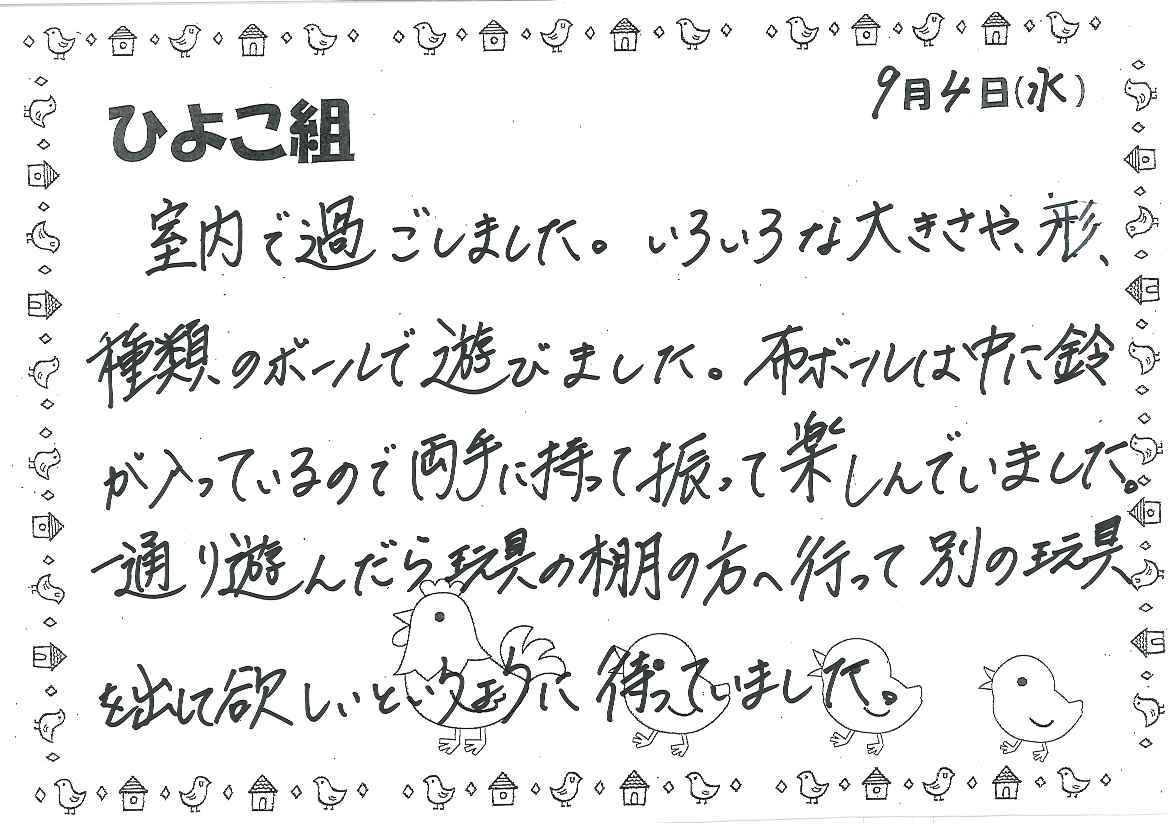 9月4日(水)
ひよこ組
室内で過ごしました。いろいろな大きさや、形、
種類、のボールで遊びました。布ボールは中に鈴
が入っているので両手に持って振って楽しんでいました。
一通り遊んだら玩具の棚の方へ行って別の玩具
を出して欲しいという
に待っていました。